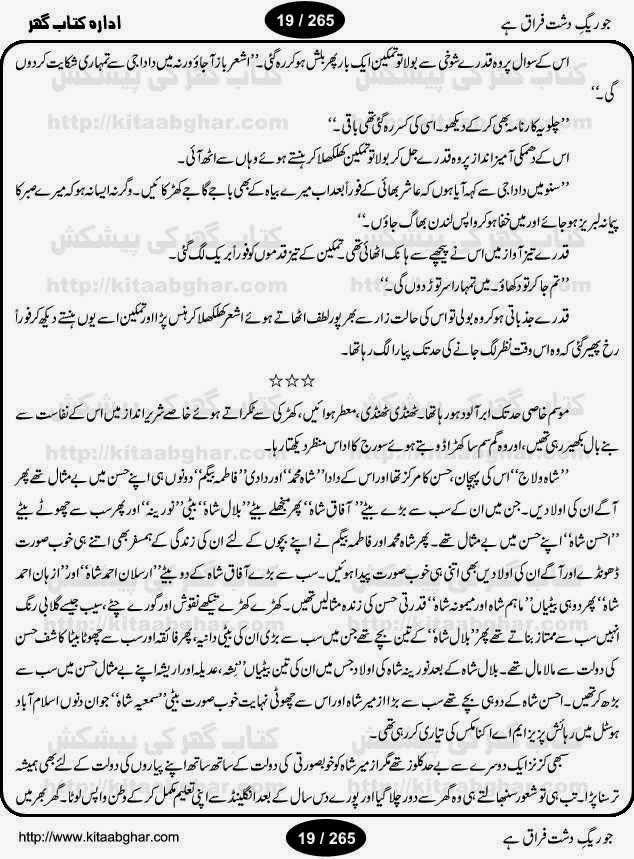 ادارہ کتاب گھر
19 / 265
جو ریگِ دشتِ فراق ہے
اس کے سوال پر وہ قدرے شوخی سے بولا تو تمکین ایک بار پھر بلش ہو کر رہ گئی۔ ’’اشعر باز آجاؤ ورنہ میں داداجی سے تمہاری شکایت کر دوں
گی۔‘‘
’’چلو یہ کارنامہ بھی کر کے دیکھو۔ اسی کی کسر رہ گئی تھی باقی۔‘‘
اس کے دھمکی آمیز انداز پر وہ قدرے جل کر بولا تو تمکین کھلکھلا کر ہنستے ہوئے وہاں سے اٹھ آئی۔
’’سنو میں داداجی سے کہہ آیا ہوں کہ عاشر بھائی کے فوراً بعد اب میرے بیاہ کے بھی باجے گاجے کھڑکائیں۔ وگرنہ ایسا نہ ہو کہ میرے صبر کا
پیمانہ لبریز ہو جائے اور میں خفا ہو کر واپس لندن بھاگ جاؤں۔‘‘
قدرے تیز آواز میں اس نے پیچھے سے ہانک اٹھائی تھی۔ تمکین کے تیز قدموں کو فوراً بریک لگ گئی۔
’’تم جا کر تو دکھاؤ۔ میں تمہارا سر توڑ دوں گی۔‘‘
قدرے جذباتی ہو کر وہ بولی تو اس کی حالت زار سے بھرپور لطف اٹھاتے ہوئے اشعر کھلکھلا کر ہنس پڑا اور تمکین اسے یوں ہنستے دیکھ کر فوراً
رخ پھیر گئی کہ وہ اس وقت نظر لگ جانے کی حد تک پیارا لگ رہا تھا۔
☆☆☆
موسم خاصی حد تک ابر آلود ہو رہا تھا۔ ٹھنڈی ٹھنڈی، معطر ہوائیں، کھڑکی سے ٹکراتے ہوئے خاصے شریر انداز میں اس کے نفاست سے
بنے بال بکھیر رہی تھیں، اور وہ گم سم سا کھڑا ڈوبتے ہوئے سورج کا اداس منظر دیکھتا رہا۔
’’شاہ ولاج‘‘ اس کی پہچان، حسن کا مرکز تھا اور اس کے دادا ’’شاہ محمد‘‘ اور دادی ’’فاطمہ بیگم‘‘ دونوں ہی اپنے حسن میں بے مثال تھے پھر
آگے ان کی اولادیں۔ جن میں ان کے سب سے بڑے بیٹے ’’آفاق شاہ‘‘ پھر منجھلے بیٹے ’’بلال شاہ‘‘ بیٹی ’’نورینہ‘‘ اور پھر سب سے چھوٹے بیٹے
’’احسن شاہ‘‘ اپنے حسن میں بے مثال تھے۔ پھر شاہ محمد اور فاطمہ بیگم نے اپنے بچوں کے لئے ان کی زندگی کے ہمسفر بھی اتنے ہی خوب صورت
ڈھونڈے اور آگے ان کی اولادیں بھی اتنی ہی خوب صورت پیدا ہوئیں۔ سب سے بڑے آفاق شاہ کے دو بیٹے ’’ارسلان احمد شاہ‘‘ اور ’’ازہان احمد
شاہ‘‘ پھر دو ہی بیٹیاں ’’ماہم شاہ اور میمونہ شاہ‘‘ قدرتی حسن کی زندہ مثالیں تھیں۔ کھڑے کھڑے تیکھے نقوش اور گورے چٹے، سیب جیسے گلابی رنگ
انہیں سب سے ممتاز بناتے تھے پھر ’’بلال شاہ‘‘ کے تین بچے تھے جن میں سب سے بڑی ان کی بیٹی دانیہ، پھر فائقہ اور سب سے چھوٹا بیٹا کاشف حسن
کی دولت سے مالا مال تھے۔ بلال شاہ کے بعد نورینہ شاہ کی اولاد جس میں ان کی تین بیٹیاں ’’نشہ، عدیلہ اور اریشہ اپنے بے مثال حسن میں سب سے
بڑھ کر تھیں۔ احسن شاہ کے دو ہی بچے تھے سب سے بڑا ازمیر شاہ اور اس سے چھوٹی نہایت خوب صورت بیٹی ’’سمعیہ شاہ‘‘ جو ان دنوں اسلام آباد
ہوسٹل میں رہائش پزیز ایم اے اکنامکس کی تیاری کر رہی تھی۔
سبھی کزنز ایک دوسرے سے بے حد کلوز تھے مگر ازمیر شاہ کو خوبصورتی کی دولت کے ساتھ ساتھ اپنے پیاروں کی دولت کے لئے بھی ہمیشہ
ترسنا پڑا۔ تب ہی تو شعور سنبھالتے ہی وہ گھر سے دور چلا گیا اور پورے دس سال کے بعد انگلینڈ سے اپنی تعلیم مکمل کر کے وطن واپس لوٹا۔ گھر بھر میں
http://www.kitaabghar.com
19 / 265
جو ریگِ دشتِ فراق ہے